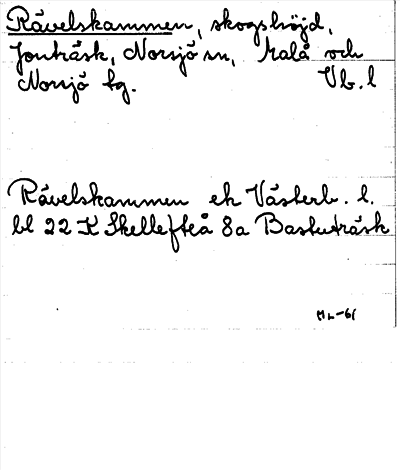 Rävelskammen, skogshöjd,
Jonträsk, Norsjö sn, Malå och
Norsjö tg. Vb. l
Rävelskammen ek Västerb. l.
bl 22 K Skellefteå 8a Bastuträsk